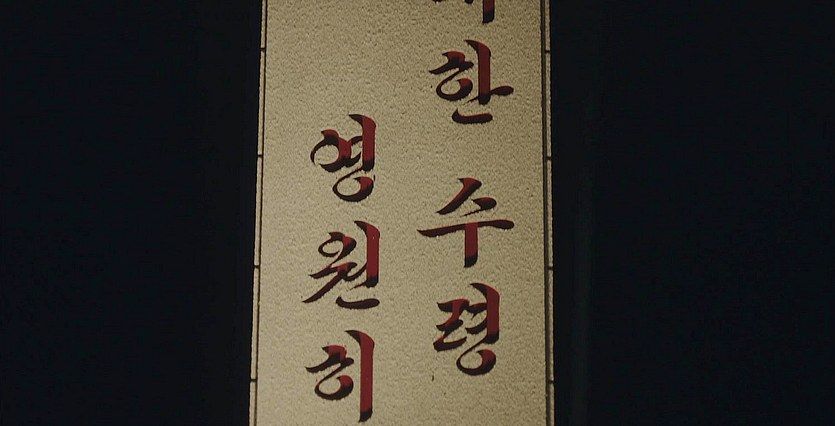 한 수령
영원히